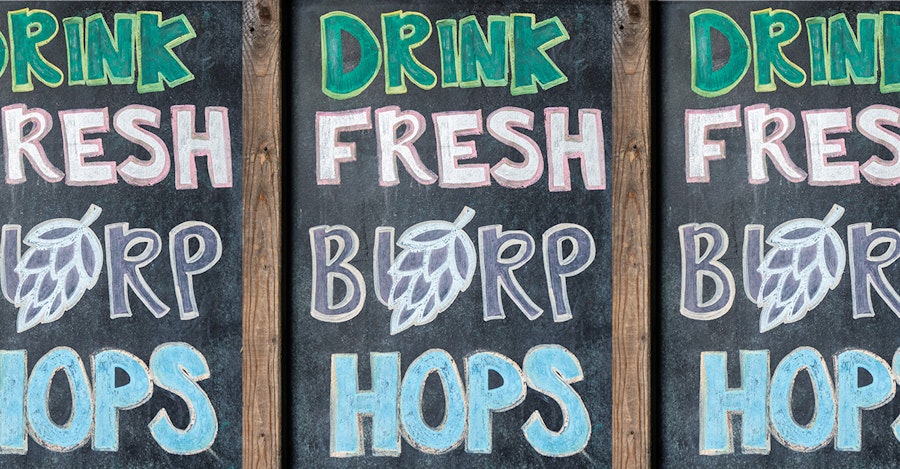 DRINK
FRESH
BURP
HOPS
DRINK
FRESH
BURP
HOPS
DRINK
FRES
BUR
HOPS